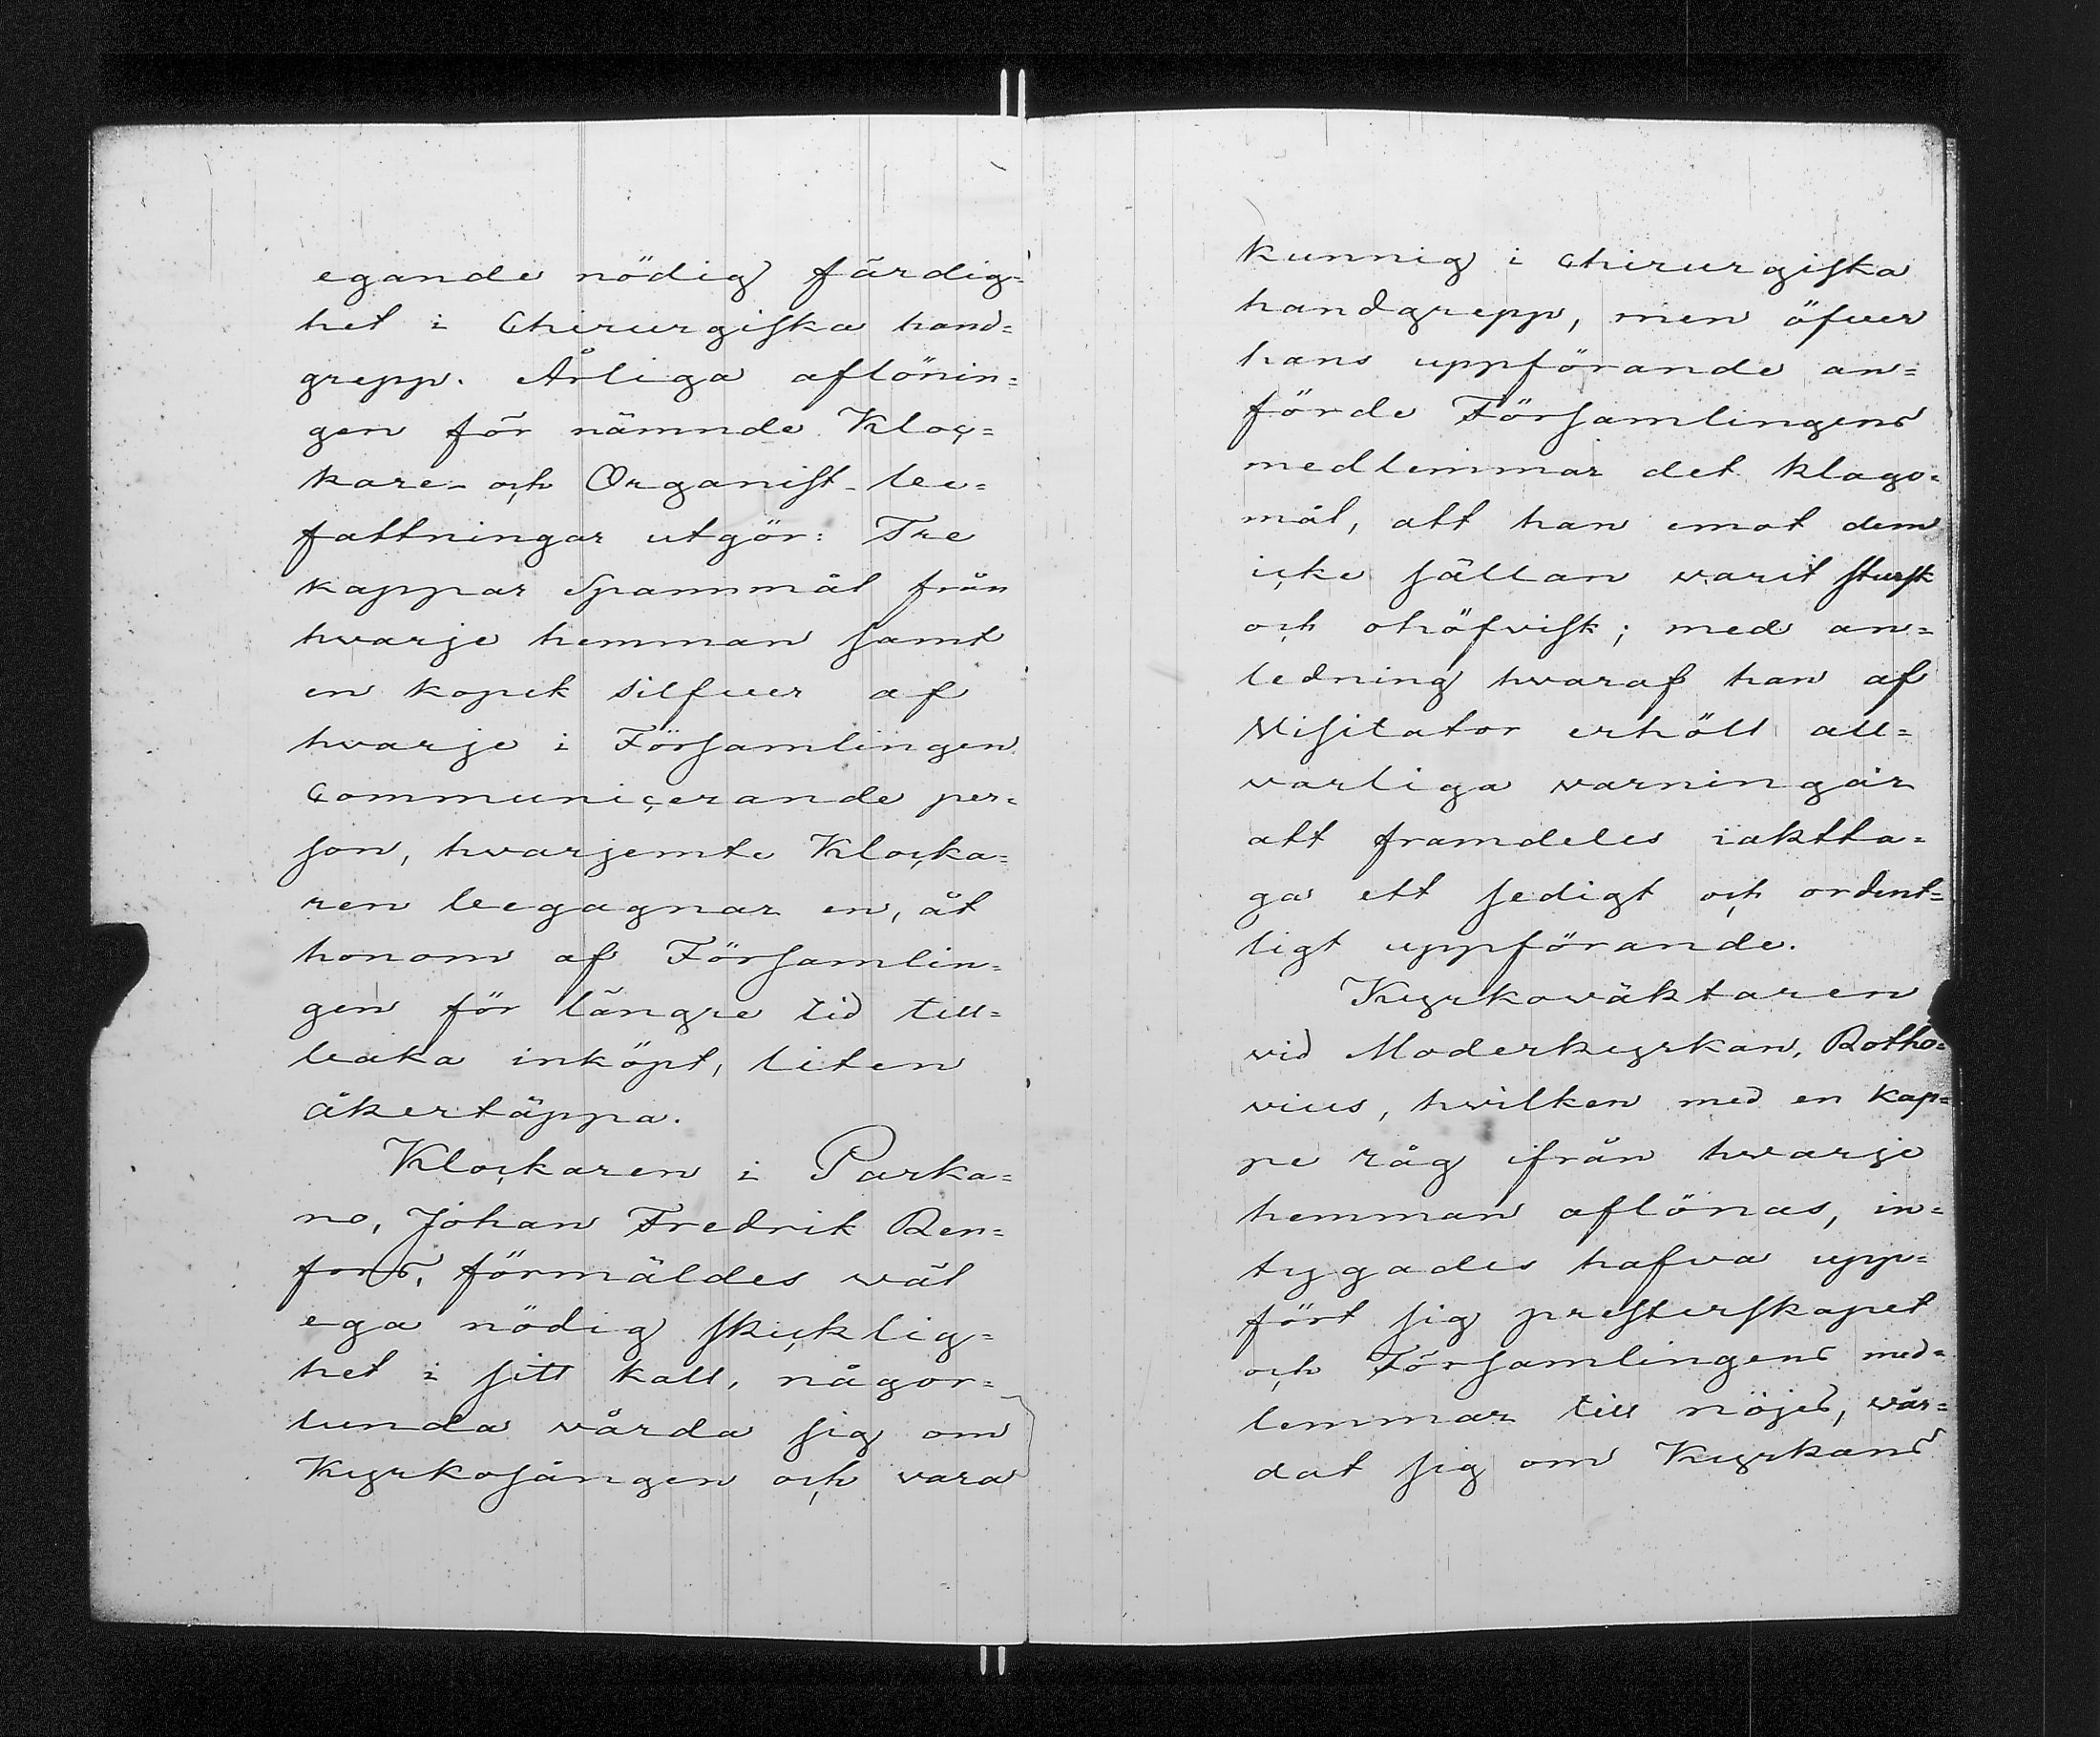 egande nödig färdig=
het i Chirurgiska hand=
grepp. Årliga aflönin=
gen för nämnde Kloc=
kare- och Organist-be=
fattningar utgör: Tre
kappar Spannmål från
hwarje hemman samt
en kopek silfver af
hwarje i Församlingen
Communicerande per=
son, hwarjemte Klocka=
ren begagnar en, åt
honom af Församlin=
gen för längre tid till=
baka inköpt, liten
åkertäppa.
Klockaren i Parka=
no, Johan Fredrik Ren=
fors, förmäldes wäl
ega nödig skicklig=
het i sitt kall, någor=
lunda wårda sig om
Kyrkosången och vara
kunnig i chirurgiska
handgrepp, men öfver
hans uppförande an=
förde Församlingens
medlemmar det klago=
mål, att han emot dem
icke sällan warit sturst
och ohöfvisk; med an=
ledning hwaraf han af
Visitator erhöll all=
varliga varningar
att framdeles iaktta=
ga ett sedigt och ordent=
ligt uppförande.
Kyrkowäktaren
vid Moderkyrkan, Rotho=
vius, hvilken med en kap=
pe råg ifrån hwarje
hemman aflönas, in=
tygades hafva upp=
fört sig presterskapet
och Församlingens med=
lemmar till nöjes, wår=
dat sig om Kyrkans